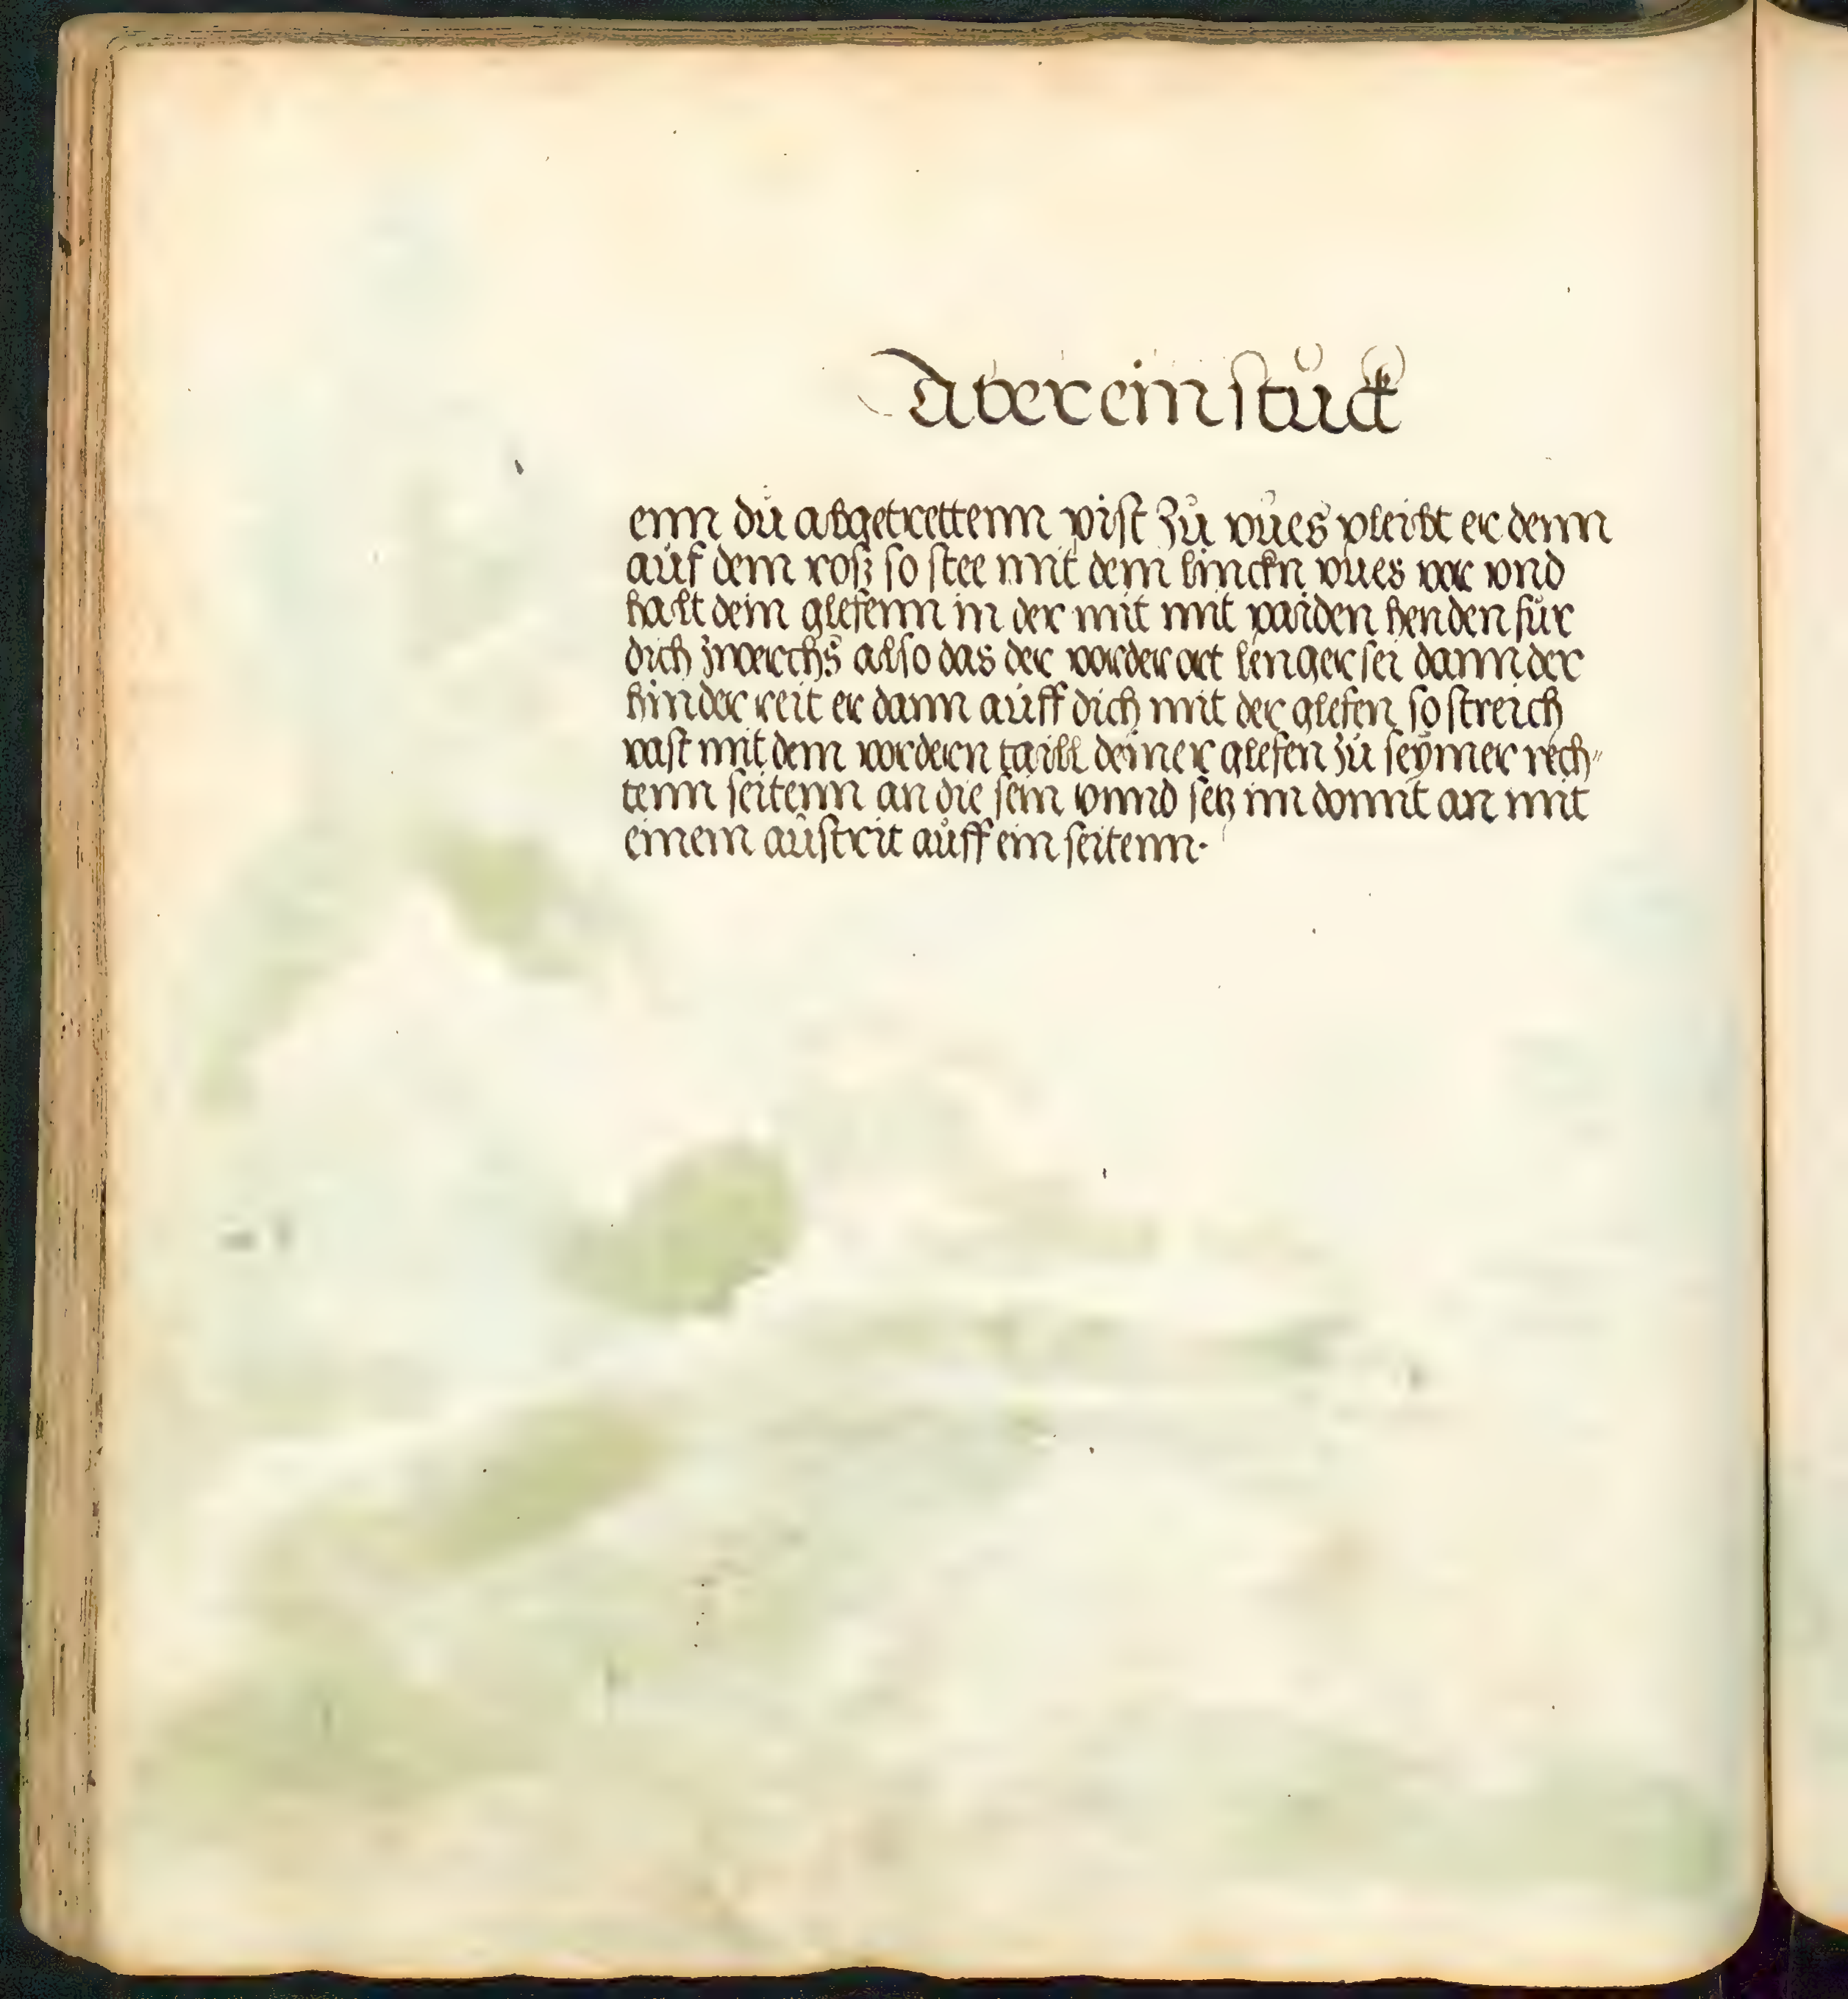 Aber ein stuck
enn dü abgetrettenn pist Zü vües pleibt er denn
auf dem roß so stee mit dem linckn vües vor vnd
halt dein glefenn in der mit mit paiden henden für
dich zwerchs also das der vorder ort lenger sei dann der
hinder reit er dann auff dich mit der glefen so streich
vast mit dem vordern taill deiner glefen zü seyner rech-
tenn seitenn an die sein vnnd setz im domit an mit
einem austrit auff ein seitenn.